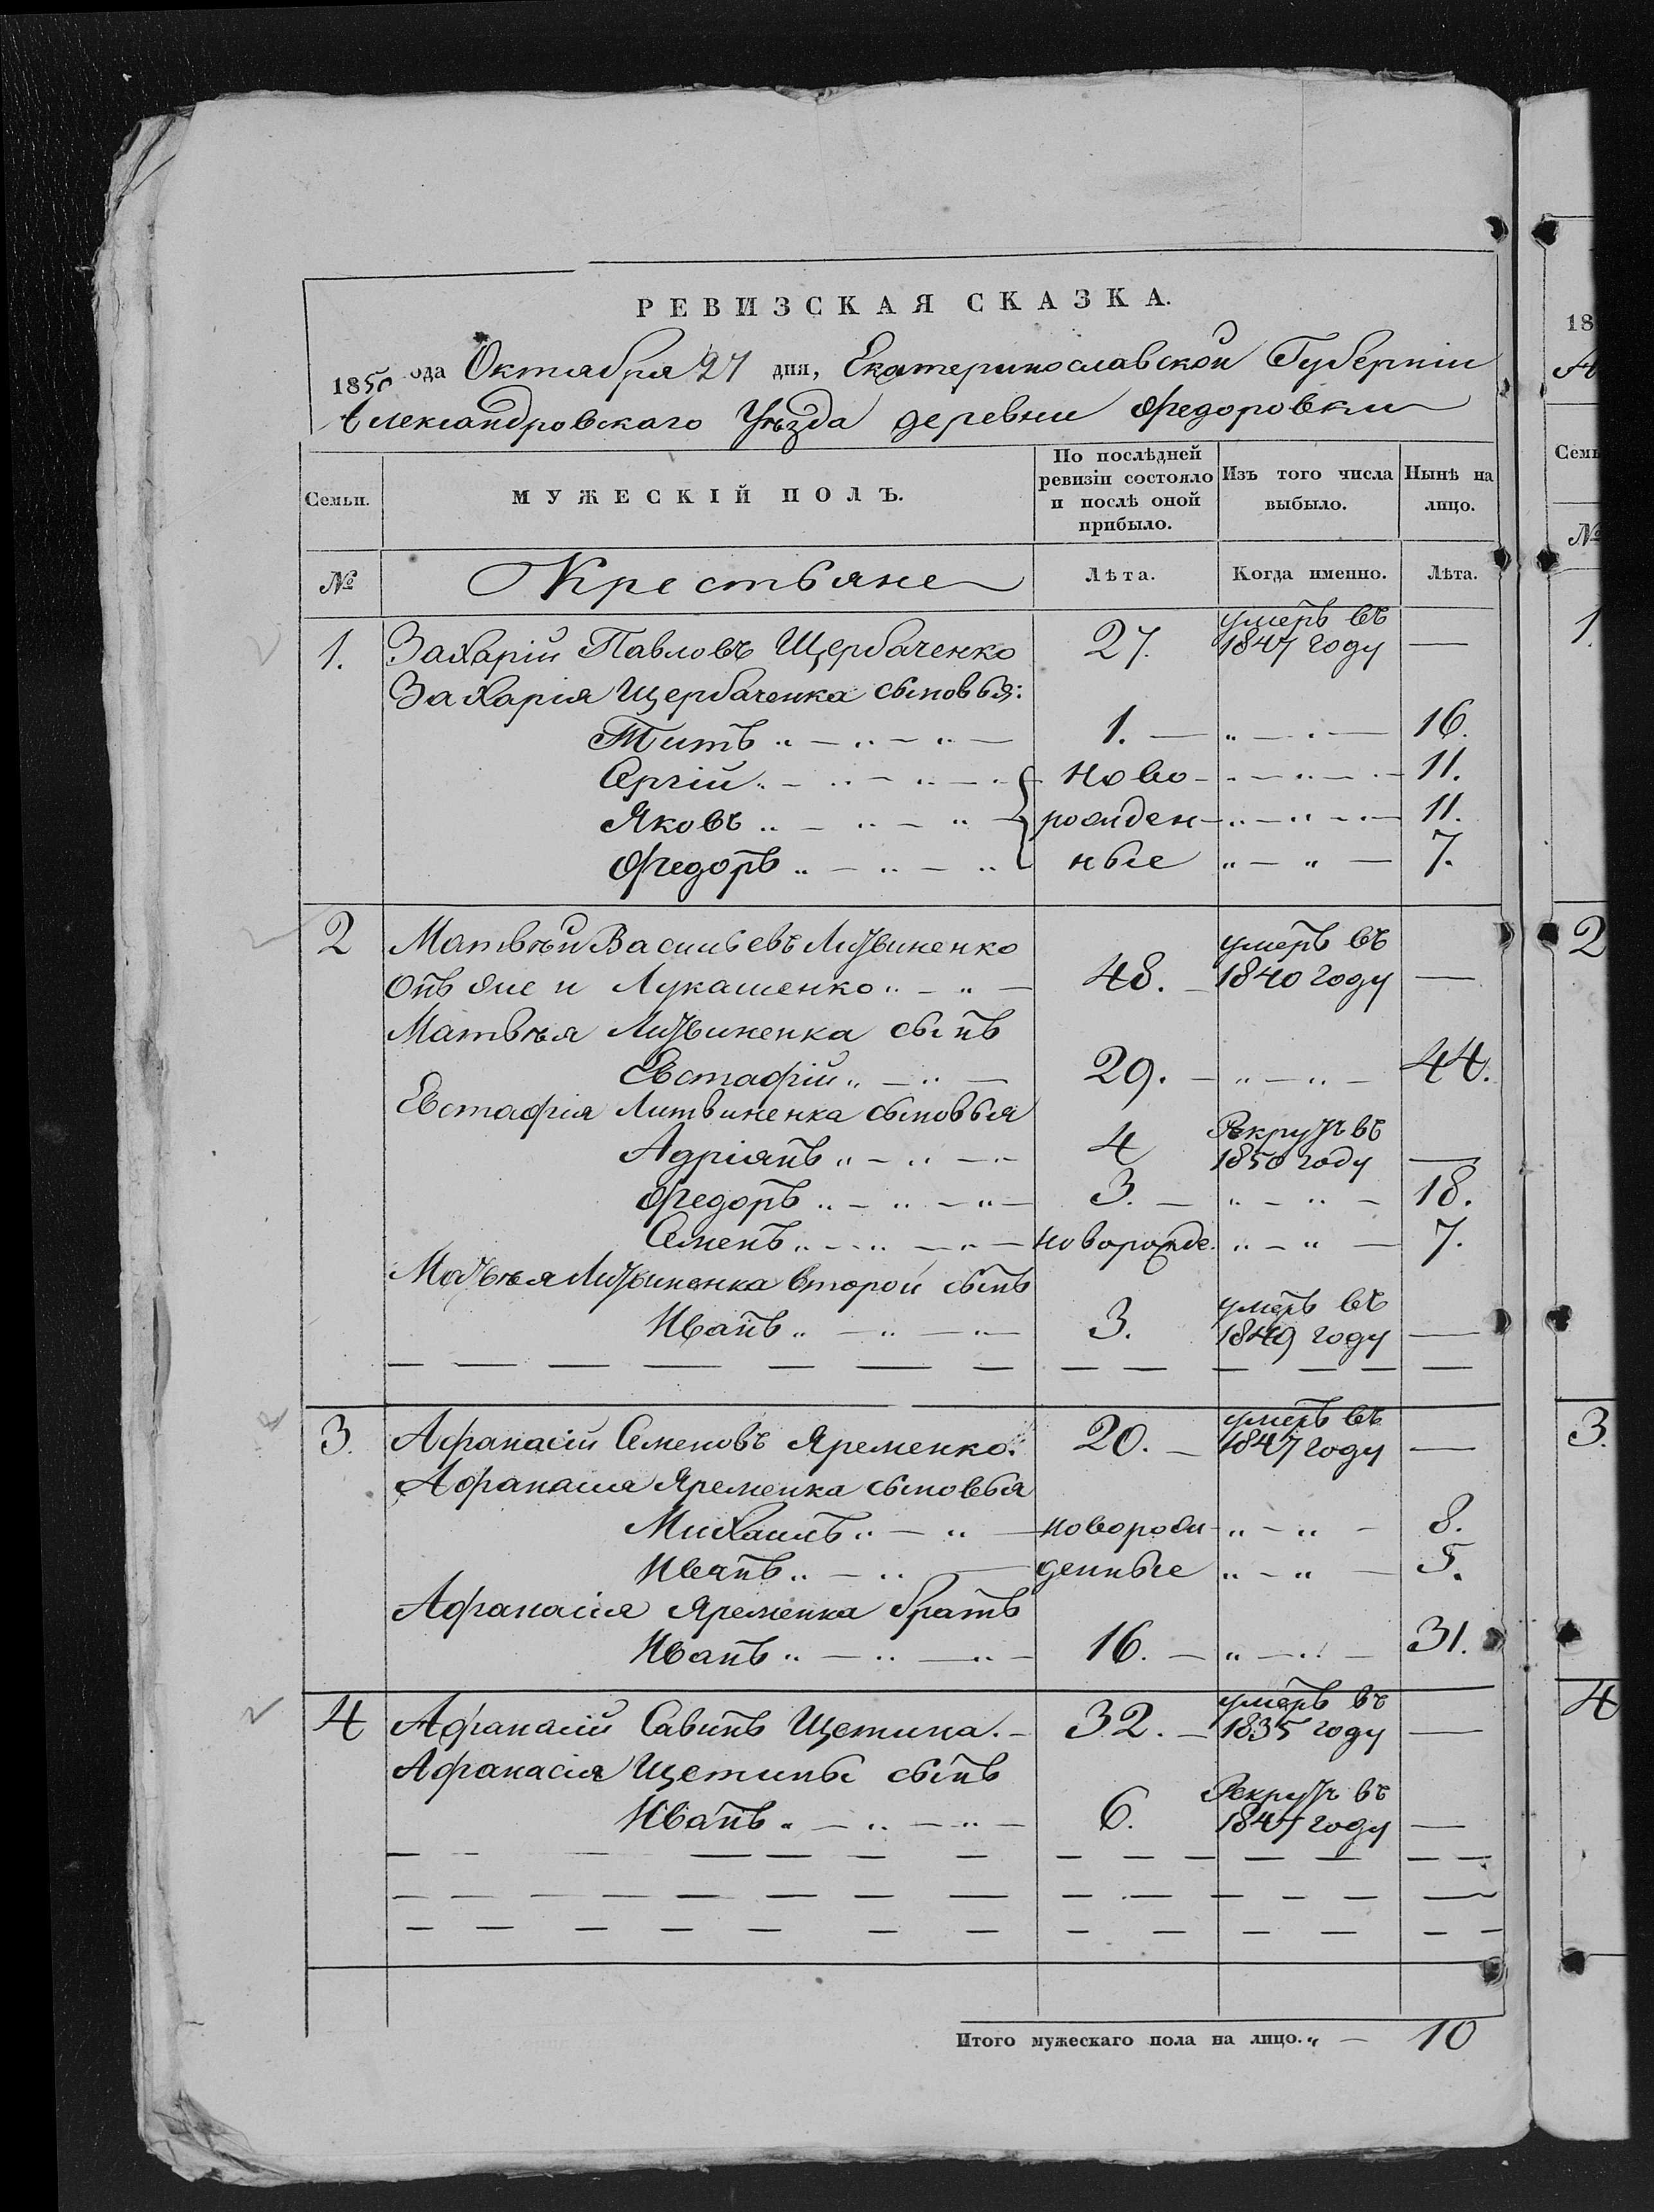 РЕВИЗСКАЯ СКАЗКА.
1850 ода Октября 27 дня, Екатеринославской Губерніи
Александровскаго Уѣзда деревни Федоровки
Семьи. МУЖЕСКІЙ ПОЛЪ. По послѣдней ревизіи состояло и послѣ оной прибыло. Изъ того числа выбыло. Нынѣ на лицо.
№ Крестьяне Лѣта. Когда именно. Лѣта.
1. Захарій Павловъ Щербаченко 27. умеръ въ 1847 году —
Захарія Щербаченка сыновья:
Титъ 1. — 16.
Сергій ново- 11.
Яковъ рожден- 11.
Федоръ ные 7.
2 Матвѣй Васильевъ Литвиненко
онъ же и Лукашенко 48. умеръ въ 1840 году —
Матвѣя Литвиненка сынъ
Евстафій 29. 44.
Евстафія Литвиненка сыновья
Адріянъ 4 Рекрутъ въ 1850 году —
Федоръ 3. 18.
Семенъ новорожде. 7.
Матвѣя Литвиненка второй сынъ
Иванъ 3. умеръ въ 1849 году —
3. Афанасій Семеновъ Яременко. 20. умеръ въ 1847 году —
Афанасія Яременка сыновья
Михаилъ новорож- 8.
Иванъ денные 5.
Афанасія Яременка братъ
Иванъ 16. 31.
4 Афанасій Савинъ Щетина. 32. умеръ въ 1835 году —
Афанасія Щетины сынъ
Иванъ 6. Рекрутъ въ 1847 году —
Итого мужескаго пола на лицо. 10
18
Семь
№
1.
2
3.
4